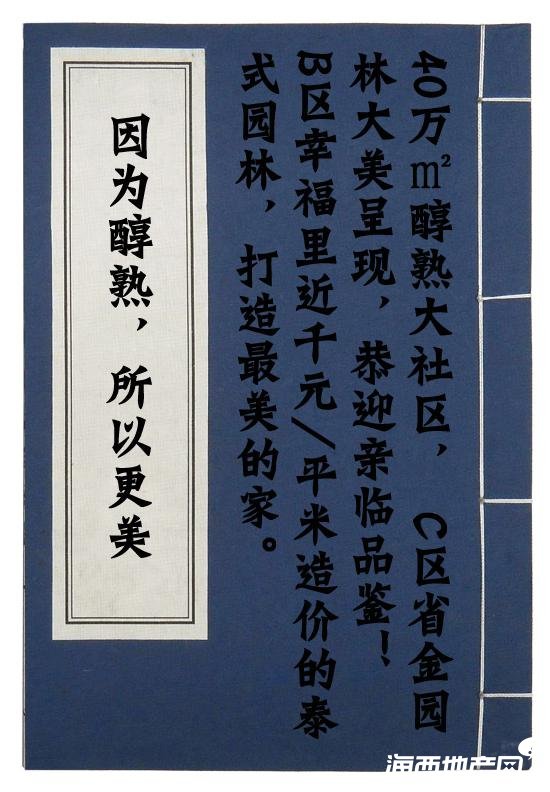 40万㎡醇熟大社区，C区省金园
林大美呈现，恭迎亲临品鉴！
B区幸福里近千元/平米造价的泰
式园林，打造最美的家。
因为醇熟，所以更美
海西地产网